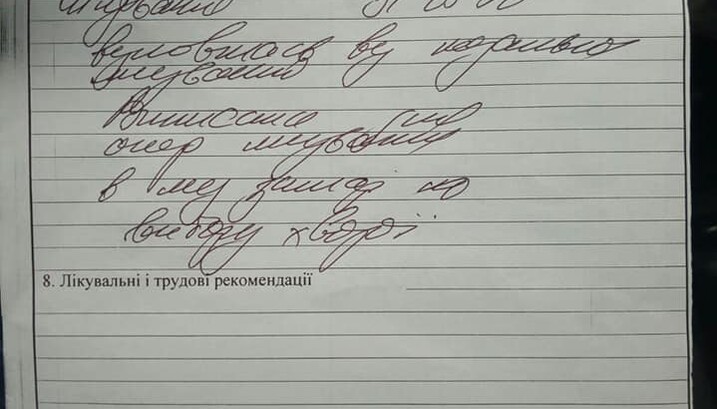 лікування
відмовилася від подальшого
лікування
Виписана для
опер лікування
в му закладі по
вибору хворої
8. Лікувальні і трудові рекомендації